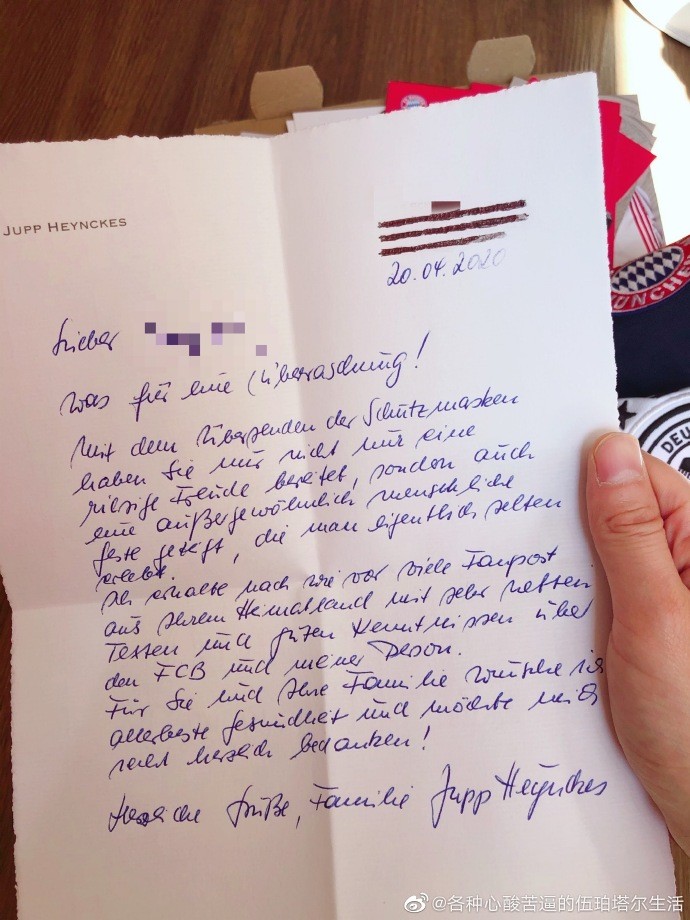 JUPP HEYNCKES
20.04.2020
Lieber
Was für eine Überraschung!
Mit dem Übersenden der Schutzmasken
haben Sie mir nicht nur eine
riesige Freude bereitet, sondern auch
eine außergewöhnlich menschliche
Geste gezeigt, die man eigentlich selten
erlebt.
Ich erhalte nach wie vor viele Fanpost
aus Ihrem Heimatland mit sehr netten
Texten und guten Kenntnissen über
den FCB und meiner Person.
Für Sie und Ihre Familie wünsche ich
allerbeste Gesundheit und möchte mich
recht herzlich bedanken!
Herzliche Grüße, Familie Jupp Heynckes
MÜNCHEN
DEU
@各种心酸苦逼的伍珀塔尔生活